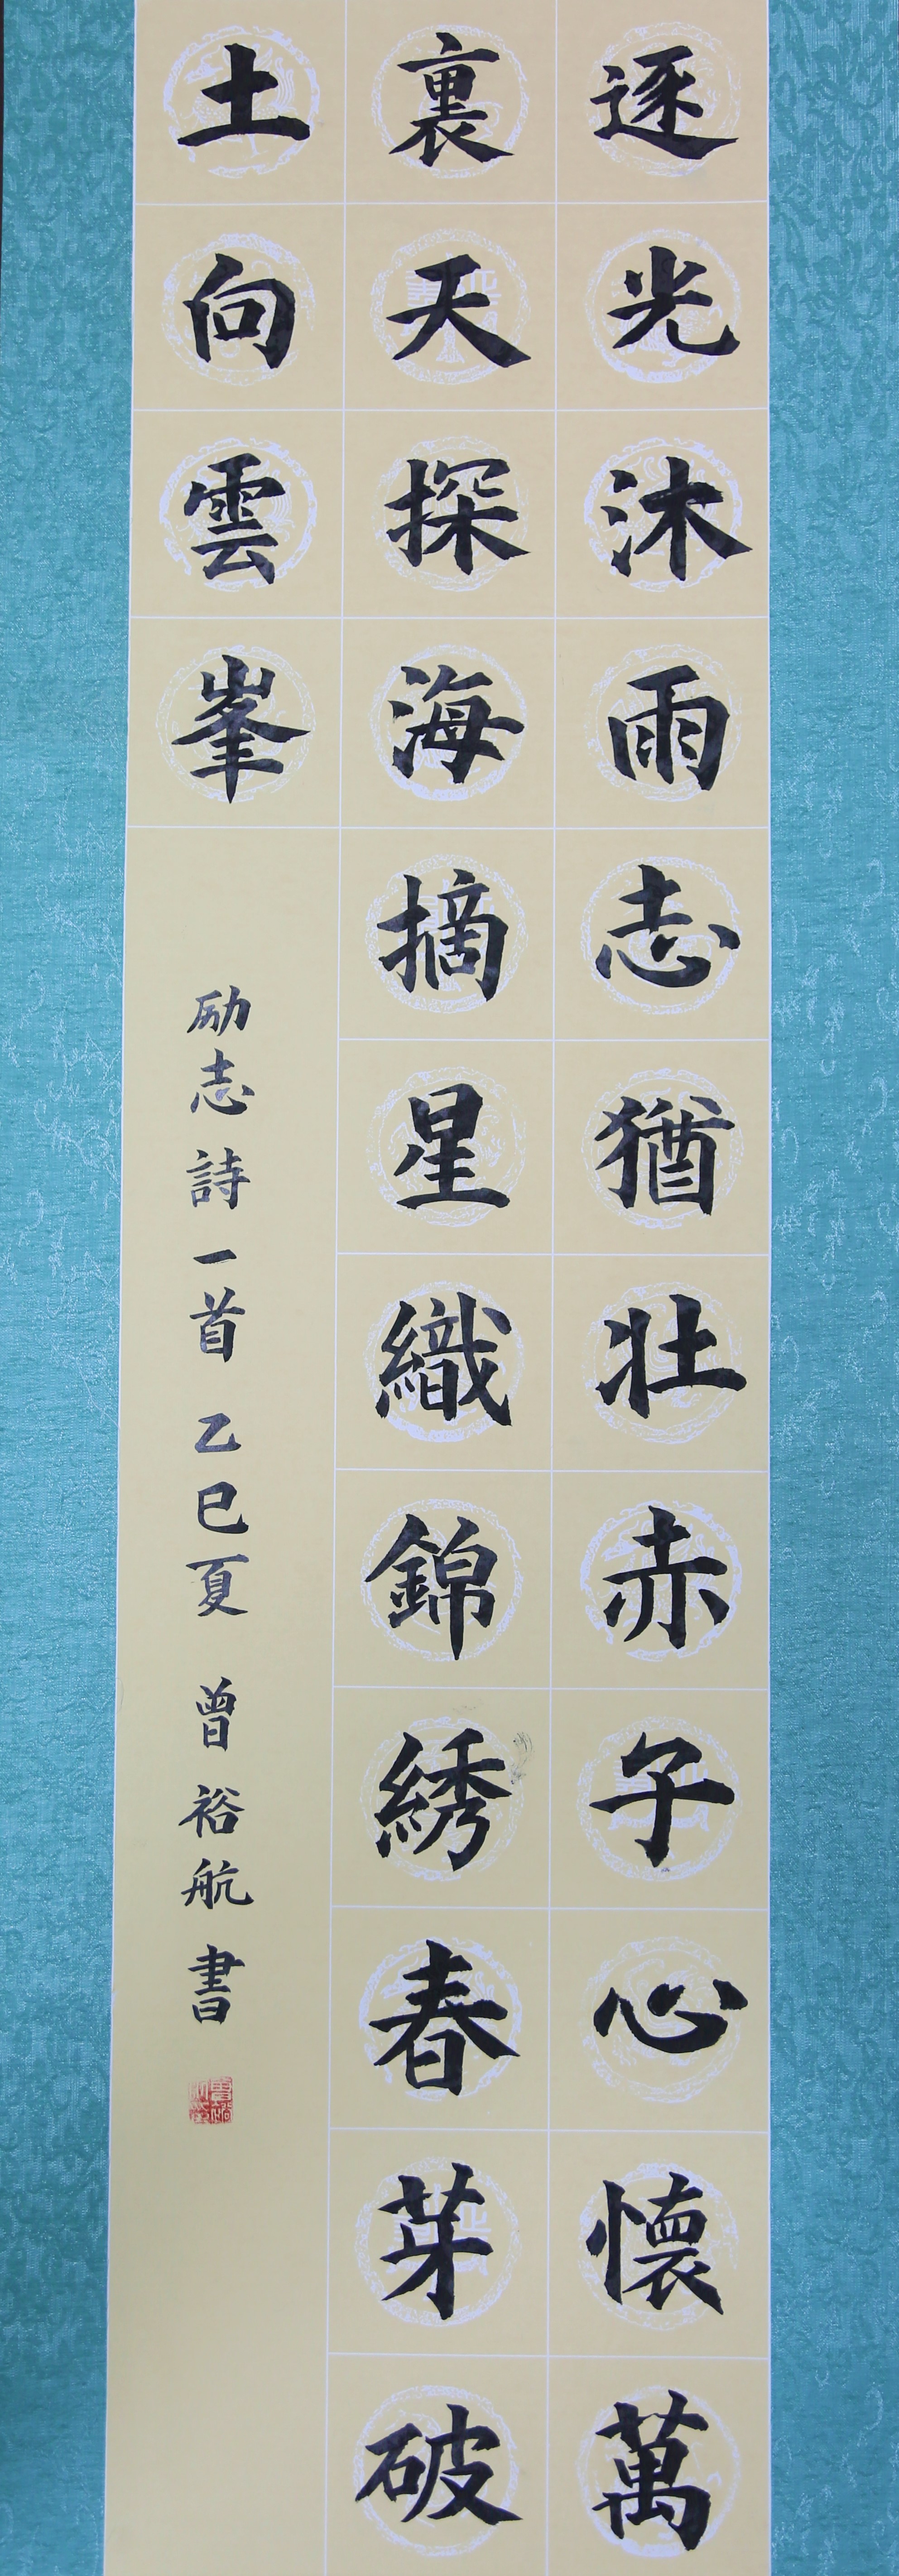 逐光沐雨志猶壯赤子心懷萬
裏天探海摘星織錦綉春芽破
土向雲峯
励志詩一首乙巳夏曾裕航書